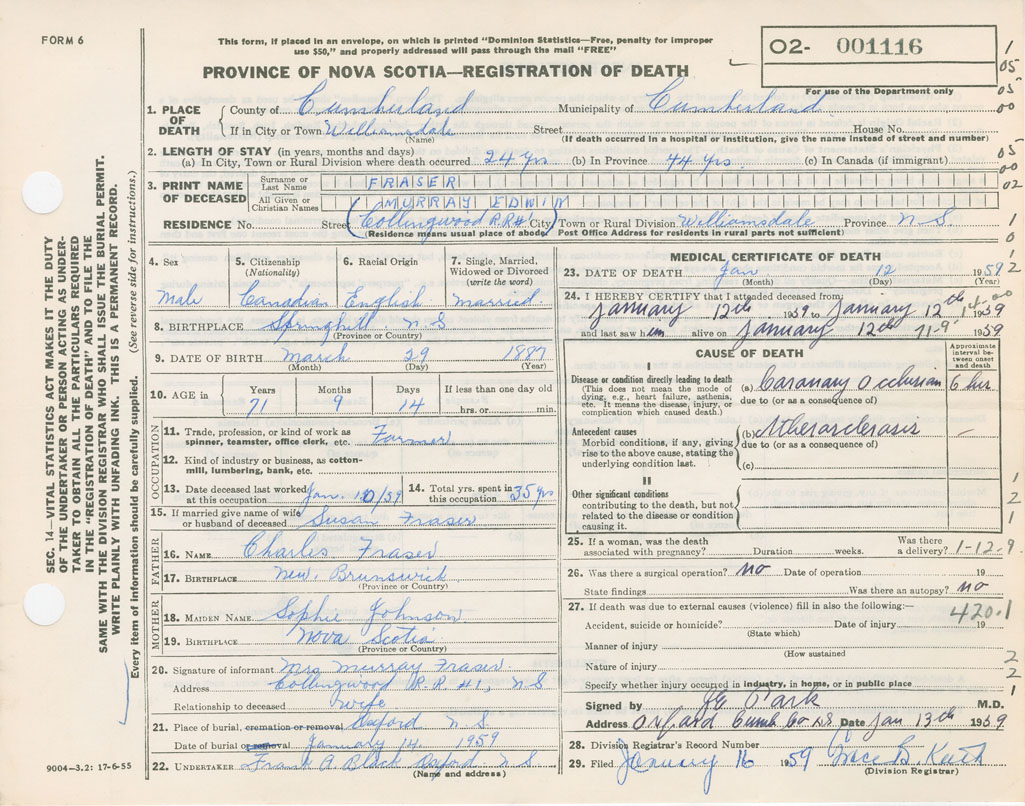 FORM 6
This form, if placed in an envelope, on which is printed "Dominion Statistics—Free, penalty for improper
use $50," and properly addressed will pass through the mail "FREE"
PROVINCE OF NOVA SCOTIA—REGISTRATION OF DEATH
O2- 001116
For use of the Department only
1
05
05
00
05
00
02
1
0
1
2
SEC. 14—VITAL STATISTICS ACT MAKES IT THE DUTY
OF THE UNDERTAKER OR PERSON ACTING AS UNDER-
TAKER TO OBTAIN ALL THE PARTICULARS REQUIRED
IN THE "REGISTRATION OF DEATH" AND TO FILE THE
SAME WITH THE DIVISION REGISTRAR WHO SHALL ISSUE THE BURIAL PERMIT.
WRITE PLAINLY WITH UNFADING INK. THIS IS A PERMANENT RECORD.
Every item of information should be carefully supplied. (See reverse side for instructions.)
1. PLACE OF DEATH County of Cumberland Municipality of Cumberland
If in City or Town Williamsdale Street House No.
(Name) (If death occurred in a hospital or institution, give the name instead of street and number)
2. LENGTH OF STAY (in years, months and days)
(a) In City, Town or Rural Division where death occurred 24 yrs (b) In Province 44 yrs. (c) In Canada (if immigrant)
3. PRINT NAME OF DECEASED Surname or Last Name FRASER
All Given or Christian Names MURRAY EDWIN
RESIDENCE No. Street (Collingwood R.R#1 City) Town or Rural Division Williamsdale Province N-S
(Residence means usual place of abode. Post Office Address for residents in rural parts not sufficient)
4. Sex 5. Citizenship (Nationality) 6. Racial Origin 7. Single, Married, Widowed or Divorced (write the word)
Male Canadian English married
8. BIRTHPLACE Springhill N-S
(Province or Country)
9. DATE OF BIRTH March 29 1887
(Month) (Day) (Year)
10. AGE in Years Months Days If less than one day old
71 9 14 hrs. or min.
OCCUPATION
11. Trade, profession, or kind of work as
spinner, teamster, office clerk, etc. Farmer
12. Kind of industry or business, as cotton-
mill, lumbering, bank, etc.
13. Date deceased last worked at this occupation Jan. 10/59 14. Total yrs. spent in this occupation 35 yrs
15. If married give name of wife
or husband of deceased Susan Fraser
FATHER
16. NAME Charles Fraser
17. BIRTHPLACE New Brunswick
(Province or Country)
MOTHER
18. MAIDEN NAME Sophie Johnson
19. BIRTHPLACE Nova Scotia
(Province or Country)
20. Signature of informant Mrs Murray Fraser
Address Collingwood R.R. #1, N S
Relationship to deceased wife
21. Place of burial, cremation or removal Oxford N.S.
Date of burial or removal January 14 1959
22. UNDERTAKER Frank A Black Oxford N.S
(Name and address)
9004—3.2: 17-6-55
MEDICAL CERTIFICATE OF DEATH
23. DATE OF DEATH Jan 12 1959
(Month) (Day) (Year)
24. I HEREBY CERTIFY that I attended deceased from:
January 12th 1959 to January 12th 1959
4-00
and last saw him alive on January 12th 11-9 1959
CAUSE OF DEATH
Approximate interval between onset and death
I
Disease or condition directly leading to death
(This does not mean the mode of
dying, e.g., heart failure, asthenia,
etc. It means the disease, injury, or
complication which caused death.)
(a) Coronary Occlusion 6 hrs
due to (or as a consequence of)
Antecedent causes
Morbid conditions, if any, giving
rise to the above cause, stating the
underlying condition last.
(b) Atherosclerosis —
due to (or as a consequence of)
(c)
II
Other significant conditions
contributing to the death, but not
related to the disease or condition
causing it.
1
2
1
25. If a woman, was the death
associated with pregnancy? Duration weeks. Was there a delivery? 1-12.9.
26. Was there a surgical operation? no Date of operation 19
State findings Was there an autopsy? no
27. If death was due to external causes (violence) fill in also the following:—
420.1
Accident, suicide or homicide? Date of injury 19
(State which)
Manner of injury
(How sustained
Nature of injury
Specify whether injury occurred in industry, in home, or in public place
2
2
1
Signed by M.D.
Address Oxford Cumb Co NS Date Jan 13th 1959
28. Division Registrar's Record Number
29. Filed January 16 1959 Grace B. Keith
(Division Registrar)